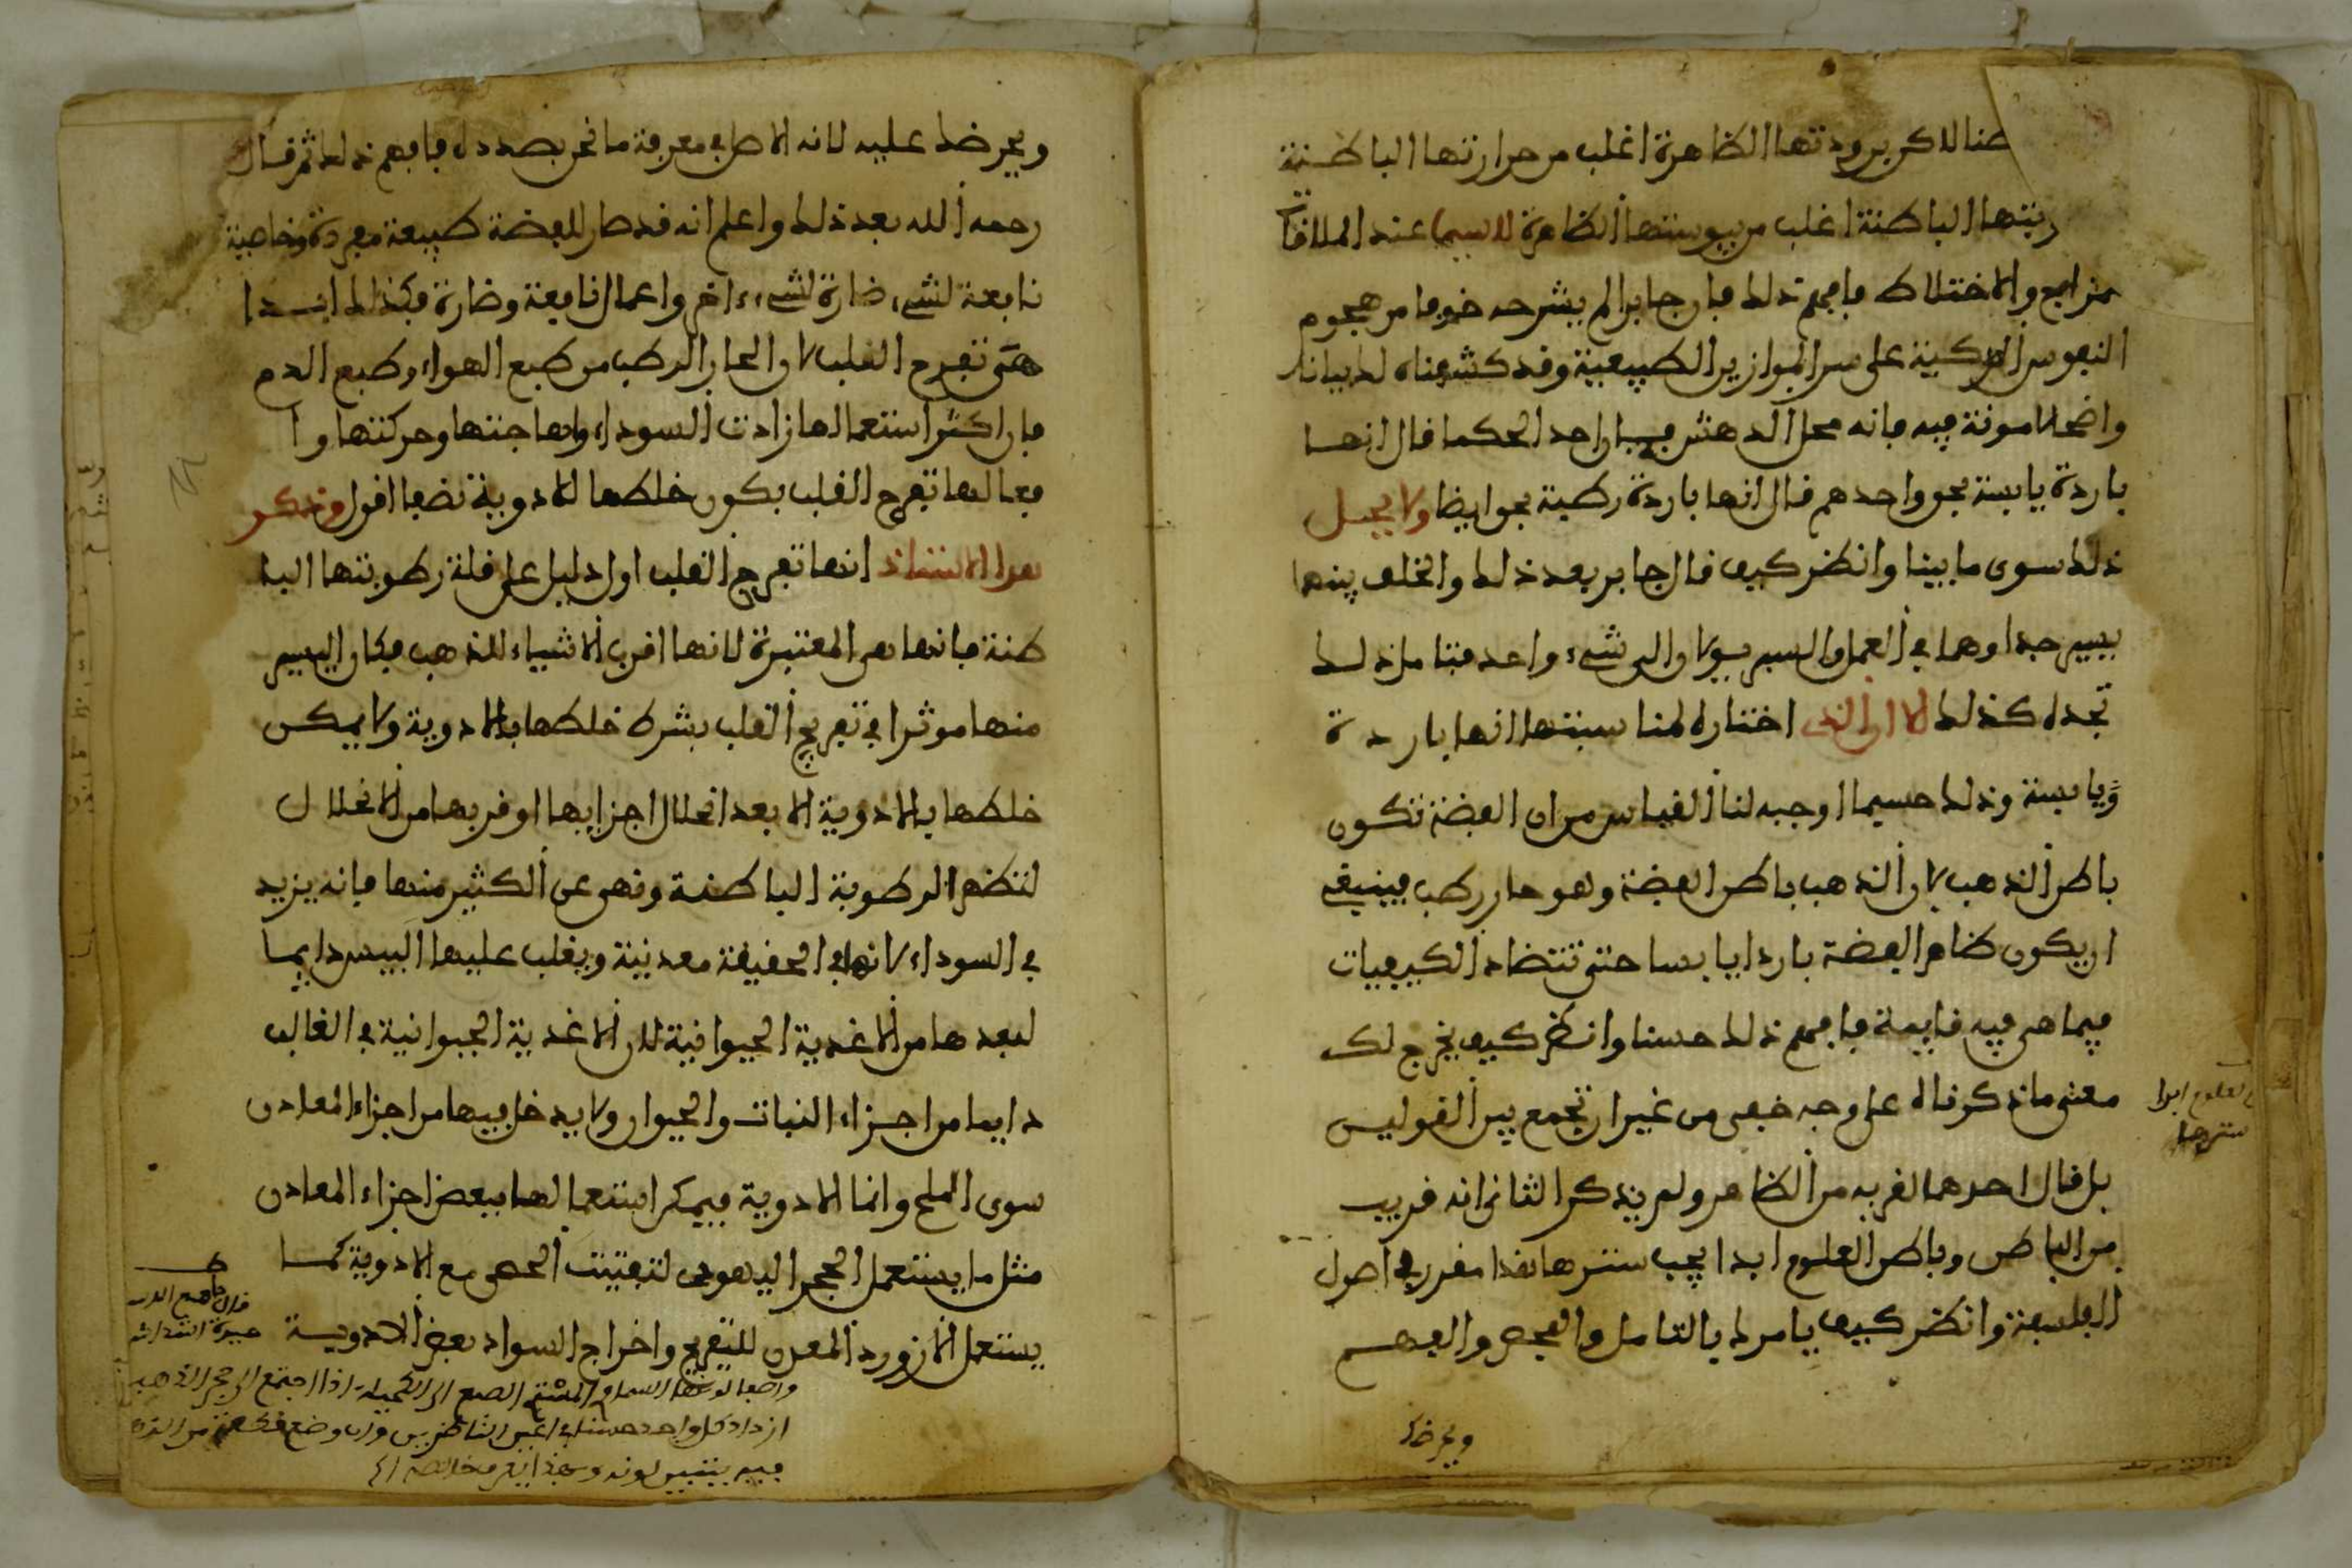 طنا لاكن برودتها الظاهرة اغلب من حرارتها الباطنة
ربتها الباطنة اغلب من يبوستها الظاهرة لاسيما عند الملاقات
متزاج والاختلاط فافهم ذلك فان جابرا لم يشرحه خوفا من هجوم
النفوس الزكية على سر الموازين الطبيعية وقد كشفناه لك بيانا
واضحا لا مونة فيه فانه محل الدهش فبان احد الحكما قال انها
باردة يابسة بحق واحدهم قال انها باردة رطبة بحق ايضا ولا يحل
ذلك سوى ما بينا وانظر كيف قال جابر بعد ذلك والخلف بينهما
يسير جدا وهما في العمل والسبر يولان الى شيء واحد فتامل ذلك
تجده كذلك لا ان الذي اختاره لمناسبتها انها باردة
ويابسة وذلك حسيما اوجبه لنا القياس من ان الفضة تكون
باطن الذهب لان الذهب باطن الفضة وهو حار رطب فينبغي
ان يكون ظاهر الفضة باردا يابسا حتى تتضاد الكيفيات
فيما هي فيه قايمة فافهم ذلك حسنا وانظر كيف يخرج لك
معنى ما ذكرناه على وجه خفي من غير ان تجمع بين القولين
بل قال احدهما لقربه من الظاهر ولم يذكر الثاني انه قريب
من الباطن وباطن العلوم ابدا يجب سترها هذا مقرر في اصول
الفلسفة وانظر كيف يامرك بالتامل والفحص والفهم
ويحرضك
العلوم ابدا
سترها
ويحرضك عليه لانه الاصل في معرفة ما نحن بصدده فافهم ذلك ثم قال
رحمه الله بعد ذلك واعلم انه قد صار للفضة طبيعة مفردة وخاصية
نافعة لشيء ضارة لشيء ءاخر واعمال نافعة وضارة فكذلك ابدا
هي تفرح القلب لان الحار الرطب من طبع الهواء وطبع الدم
فان اكثر استعمالها زادت السوداء وهاجتها وحركتها وا
فعالها تفرح القلب بكون خلطها للادوية نضعا اقول وذكر
هذا الاستاذ انها تفرح القلب اول دليل على قلة رطوبتها البا
طنة فانها هي المعتبرة لانها اقرب الاشياء للذهب فكان اليسير
منها موثرا في تفريح القلب بشرط خلطها بالادوية ولا يمكن
خلطها بالادوية الا بعد انحلال اجزايها او قربها من الانحلال
لتظهر الرطوبة الباطنة ونهى عن الكثير منها فانه يزيد
في السوداء لانها في الحقيقة معدنية ويغلب عليها اليبس دايما
لبعدها من الاغذية الحيوانية لان الاغذية الحيوانية في الغالب
دايما من اجزاء النبات والحيوان ولا يدخل فيها من اجزاء المعادن
سوى الملح وانما الادوية فيمكن استعمالها ببعض اجزاء المعادن
مثل ما يستعمل الحجر اليهودي لتفتيت الحصى مع الادوية كما
يستعمل الازورد المعدن للتفريح واخراج السواد بعض الادوية
قال جامع الدر
اذا اجتمع الى حجر الذهب
ازداد كل واحد حسنا في اعين الناظرين وان وضع قطعة من
فيه يتبين لونه